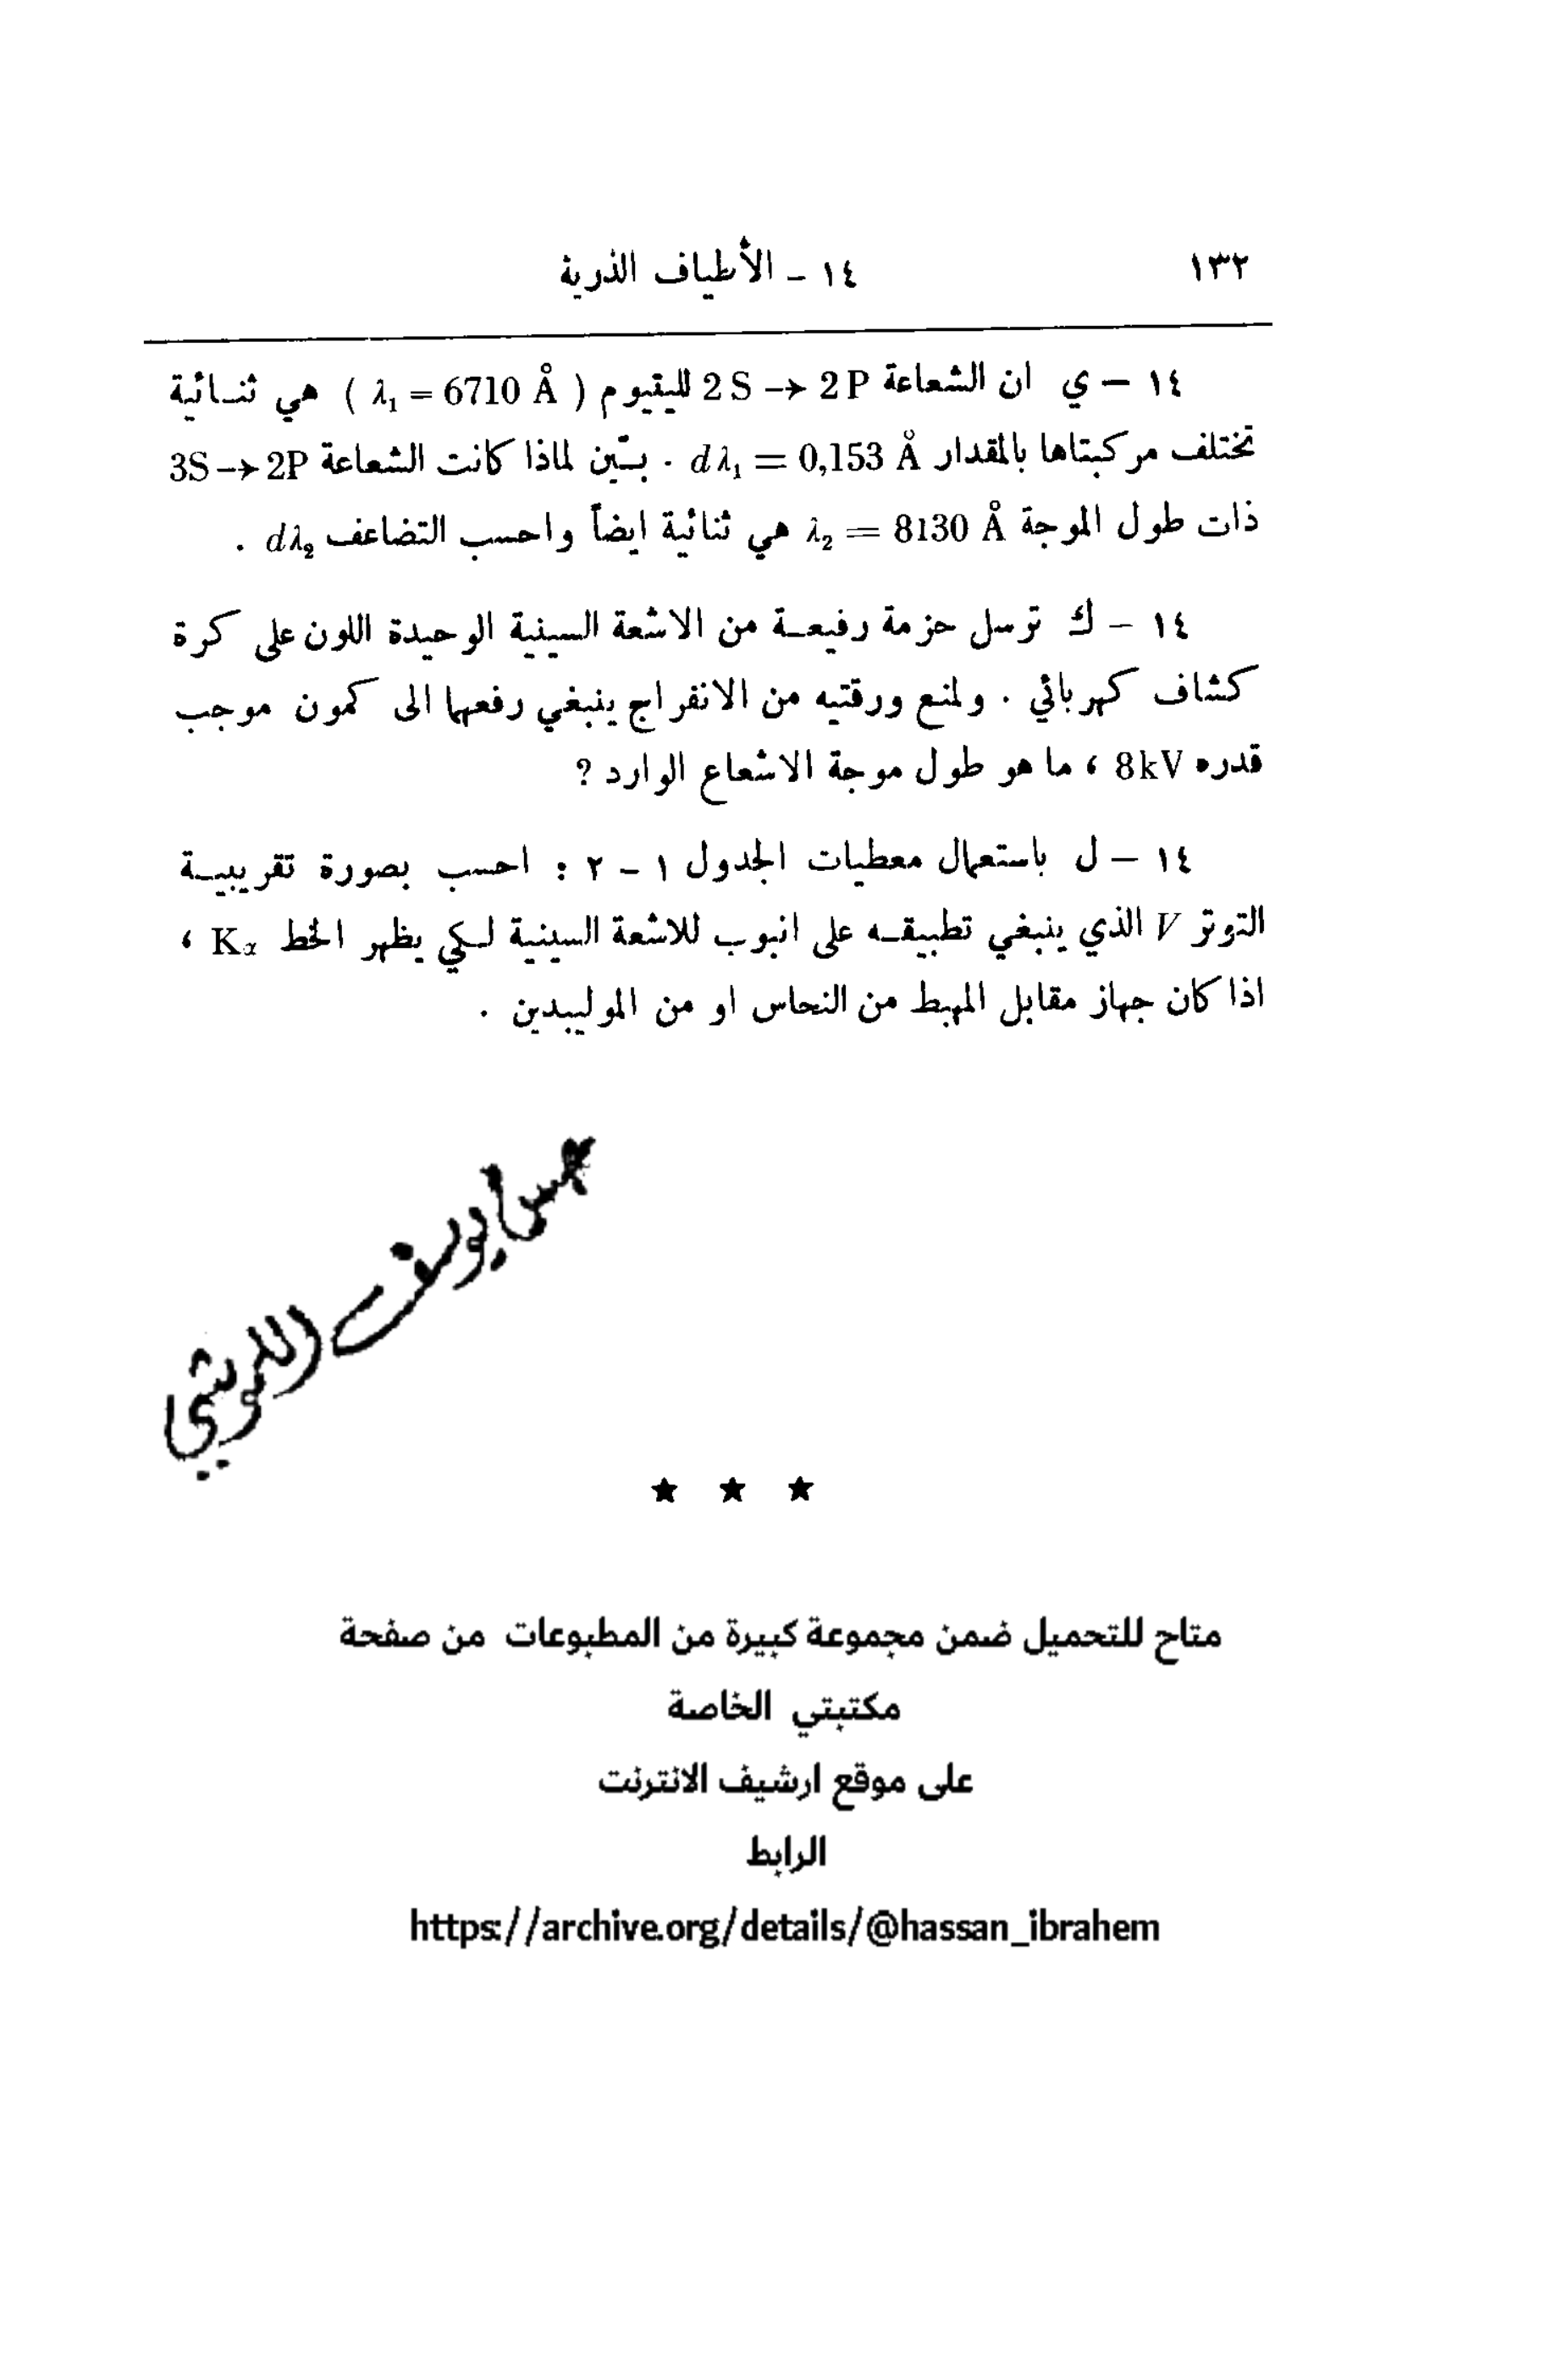 ١٣٢
١٤ – الأطياف الذرية
١٤ – ي ان الشعاعة 2S → 2P لليثيوم ( λ₁ = 6710 Å ) هي ثنائية
تختلف مركبتاها بالمقدار dλ₁ = 0,153 Å . بيّن لماذا كانت الشعاعة 3S → 2P
ذات طول الموجة λ₂ = 8130 Å هي ثنائية ايضاً واحسب التضاعف dλ₂ .
١٤ – ك ترسل حزمة رفيعة من الاشعة السينية الوحيدة اللون على كرة
كشاف كهربائي . ولمنع ورقتيه من الانفراج ينبغي رفعهما الى كمون موجب
قدره 8kV ، ما هو طول موجة الاشعاع الوارد ?
١٤ – ل باستعمال معطيات الجدول ١ – ٢ : احسب بصورة تقريبية
التوتر V الذي ينبغي تطبيقه على انبوب للاشعة السينية لكي يظهر الخط Kα ،
اذا كان جهاز مقابل المهبط من النحاس او من الموليبدين .
يوسف
★ ★ ★
متاح للتحميل ضمن مجموعة كبيرة من المطبوعات من صفحة
مكتبتي الخاصة
على موقع ارشيف الانترنت
الرابط
https://archive.org/details/@hassan_ibrahem